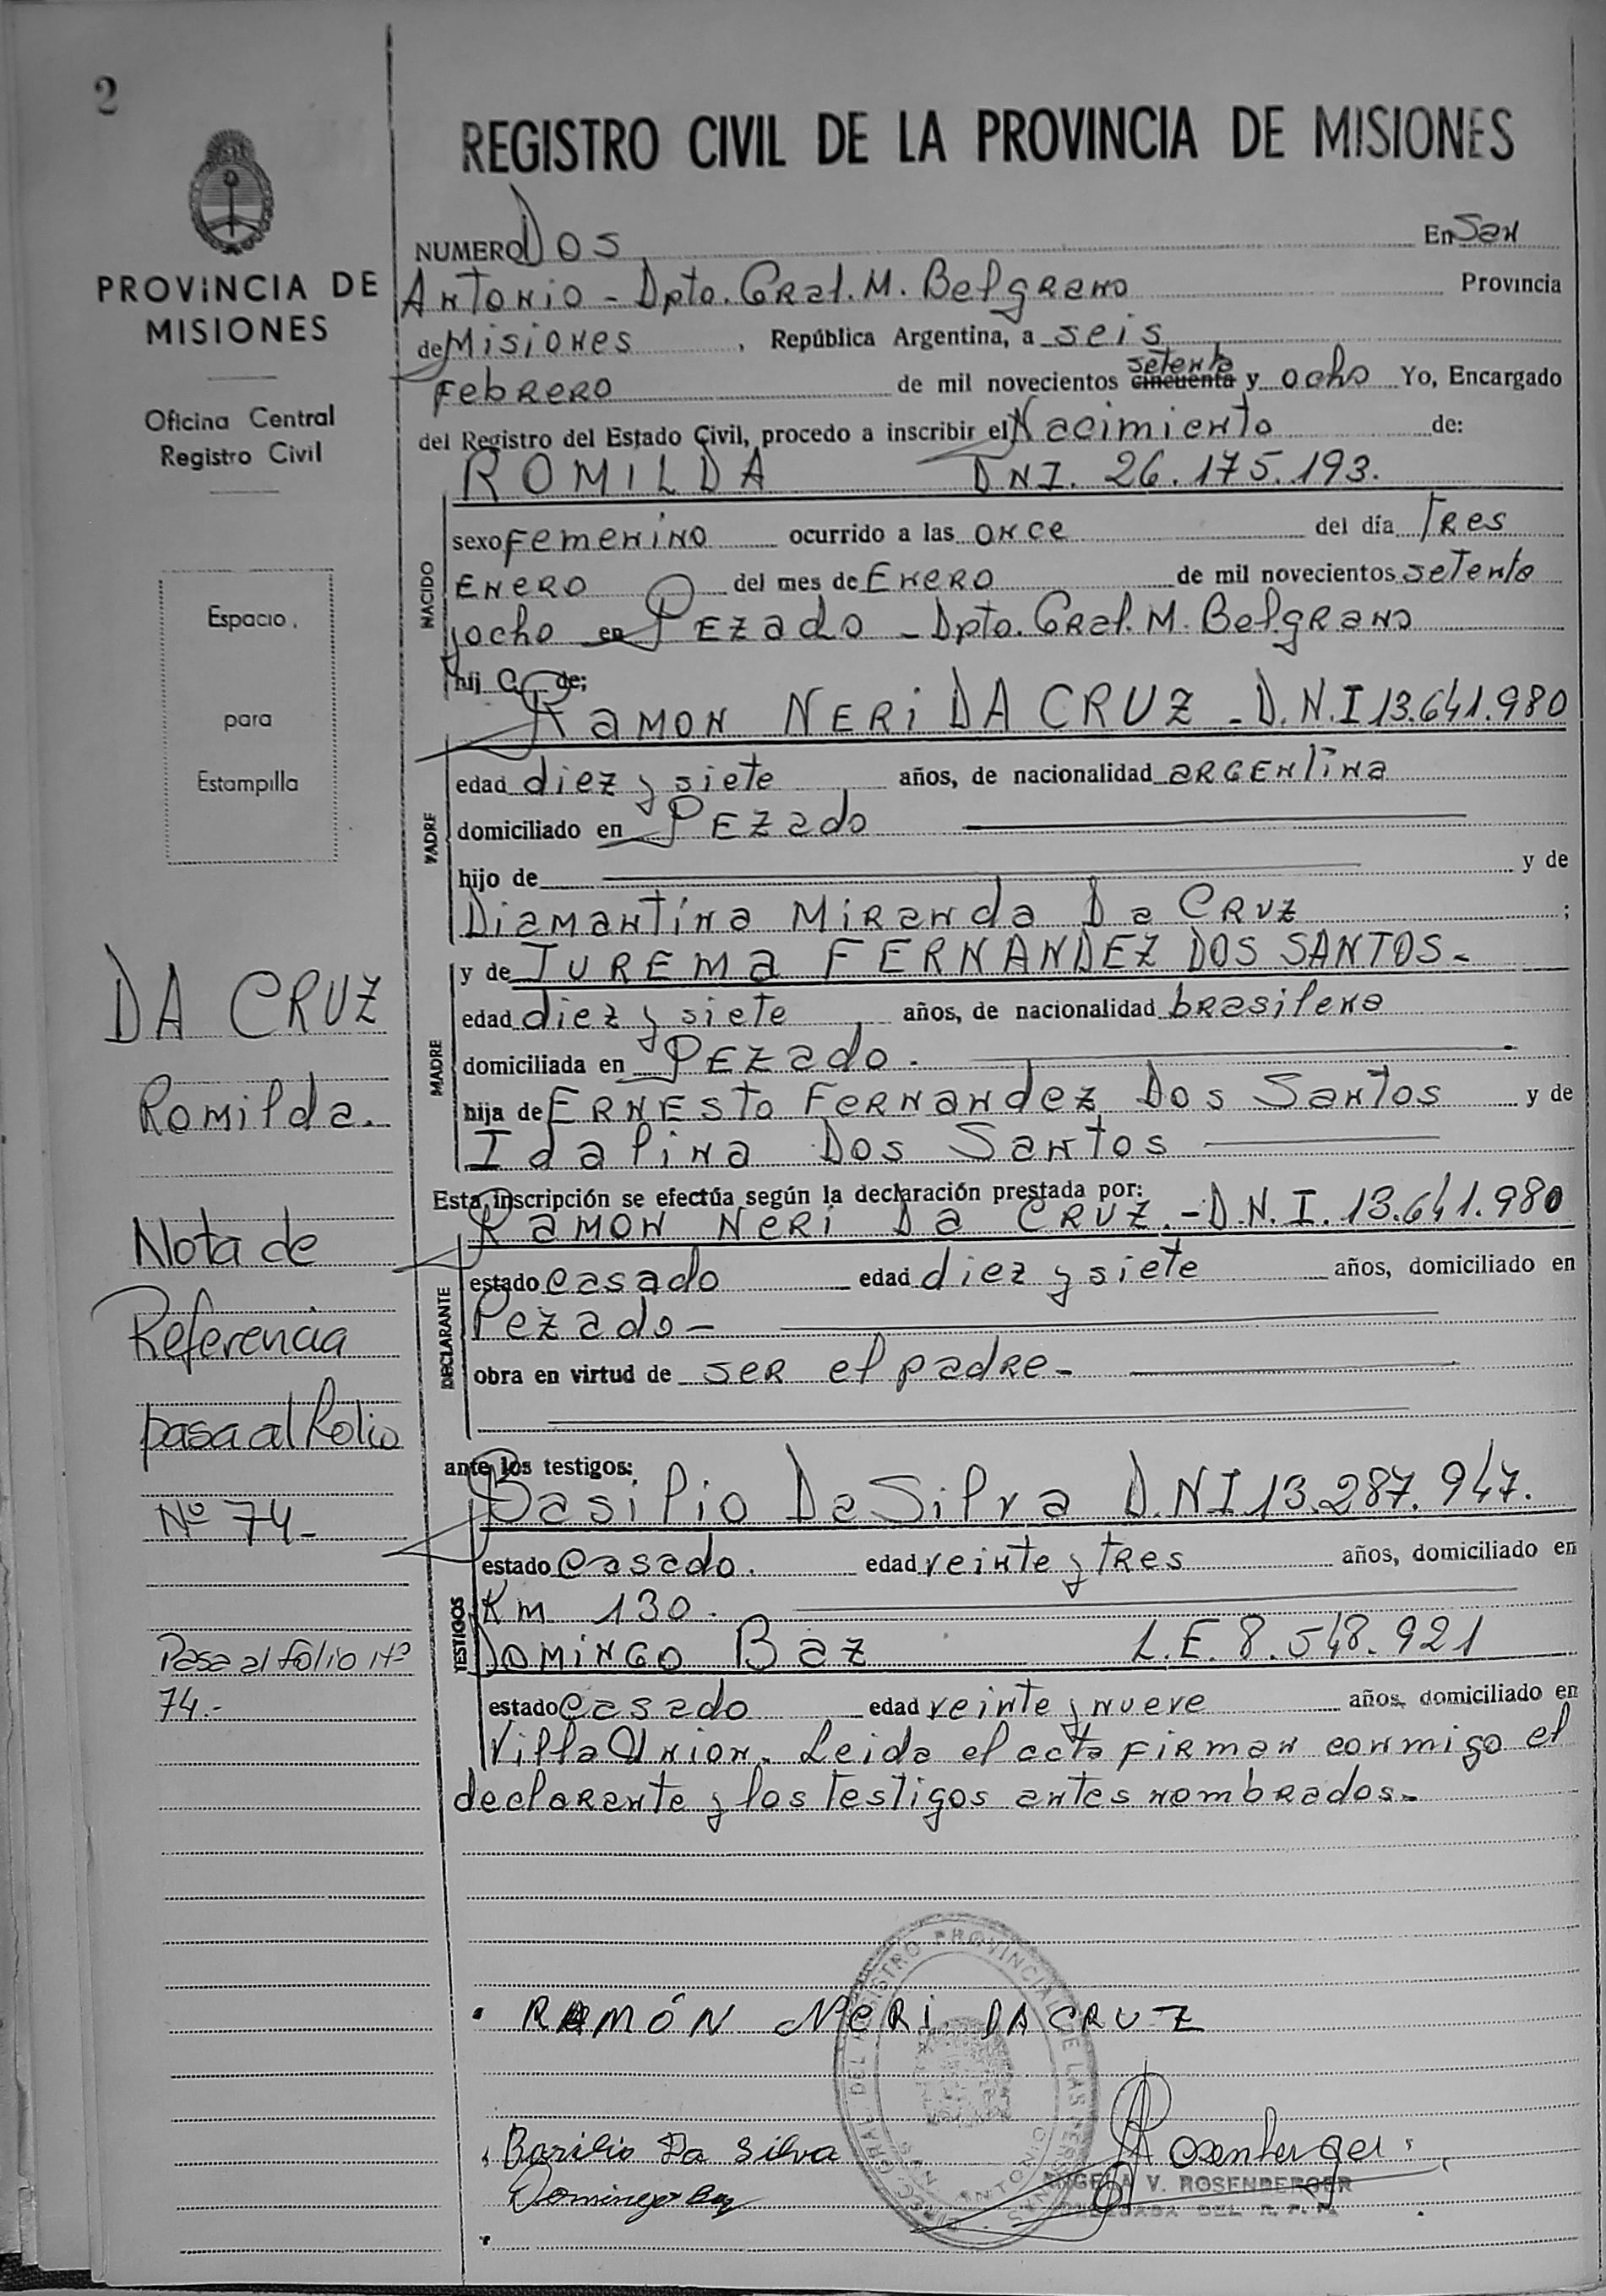 2
REGISTRO CIVIL DE LA PROVINCIA DE MISIONES
PROVINCIA DE
MISIONES
Oficina Central
Registro Civil
Espacio
para
Estampilla
DA CRUZ
Romilda.
Nota de
Referencia
pasa al folio
Nº 74-
Pasa al folio Nº
74.-
NUMERO Dos En San
Antonio - Dpto. Gral. M. Belgrano Provincia
de Misiones, República Argentina, a seis
setenta
Febrero de mil novecientos cincuenta y ocho Yo, Encargado
del Registro del Estado Civil, procedo a inscribir el Nacimiento de:
ROMILDA DNI. 26.175.193.
NACIDO
sexo Femenino ocurrido a las once del día Tres
Enero del mes de Enero de mil novecientos setenta
y ocho en Pezado - Dpto. Gral. M. Belgrano
hija de:
Ramon NERI DA CRUZ - D.N.I 13.641.980
PADRE
edad diez y siete años, de nacionalidad argentina
domiciliado en Pezado
hijo de y de
Diamantina Miranda Da Cruz ;
y de JUREMA FERNANDEZ DOS SANTOS-
MADRE
edad diez y siete años, de nacionalidad brasilena
domiciliada en Pezado.
hija de Ernesto Fernandez Dos Santos y de
Idalina Dos Santos
Esta inscripción se efectúa según la declaración prestada por:
Ramon Neri Da Cruz.-D.N.I. 13.641.980
DECLARANTE
estado casado edad diez y siete años, domiciliado en
Pezado-
obra en virtud de ser el padre-
ante los testigos:
Basilio Da Silva D.N.I 13.287.947.
TESTIGOS
estado casado. edad veinte y tres años, domiciliado en
Km 130.
Domingo Baz L.E. 8.548.921
estado casado edad veinte y nueve años, domiciliado en
Villa Union. Leida el acta firman conmigo el
declarante y los testigos antes nombrados-
RAMÓN NERI DA CRUZ
Basilio Da Silva
Domingo Baz
Rosenberger
ANGELA V. ROSENBERGER